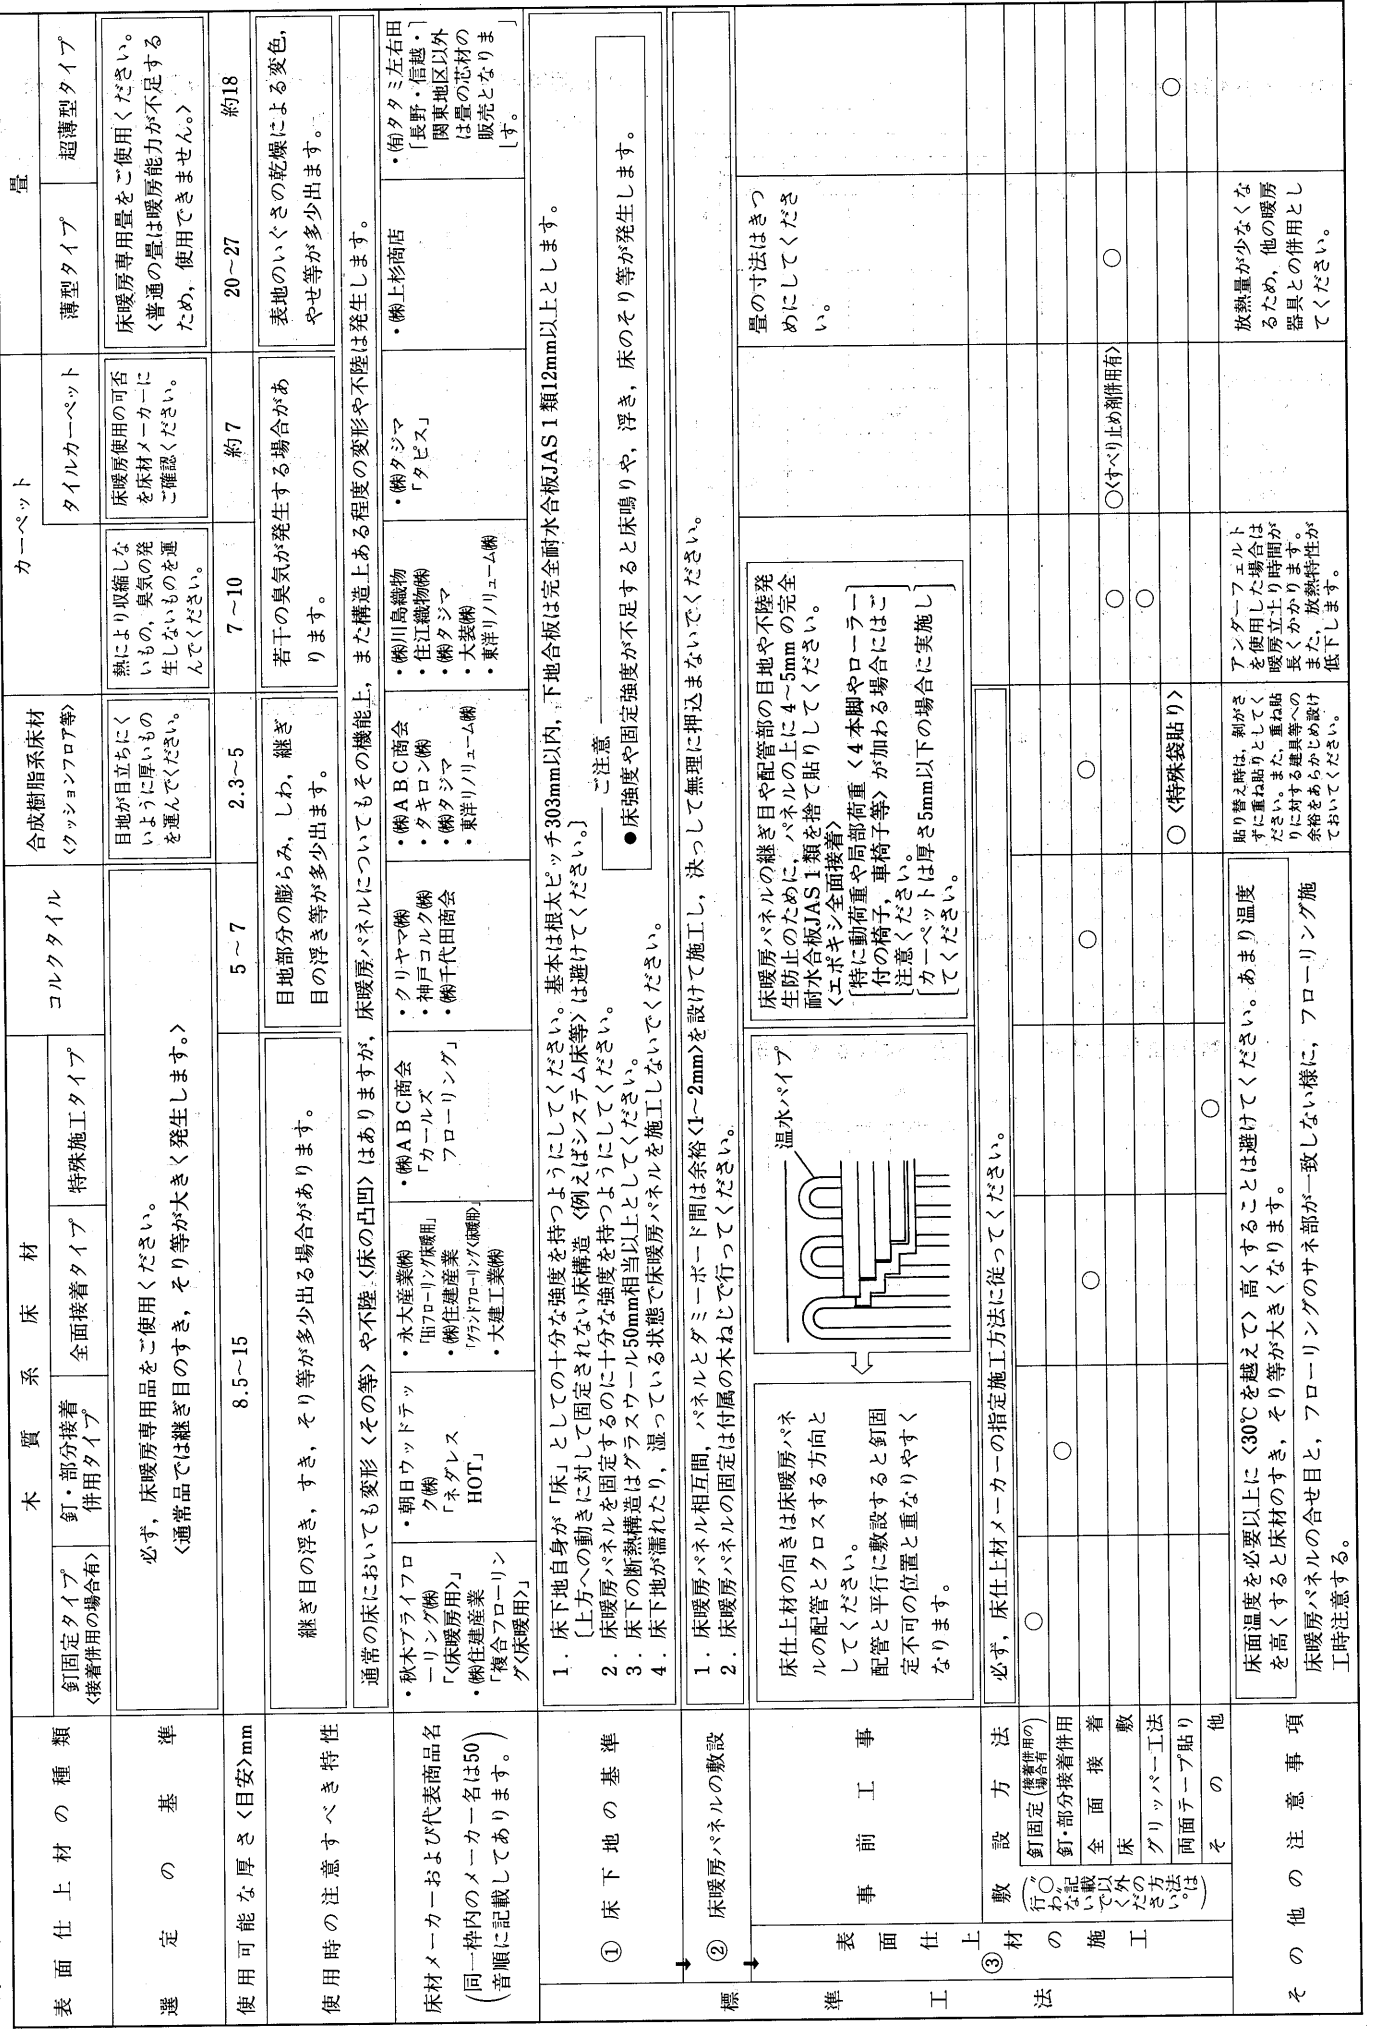 表面仕上材の種類
木質系床材
コルクタイル
合成樹脂系床材
〈クッションフロア等〉
カーペット
畳
釘固定タイプ
〈接着併用の場合有〉
釘・部分接着
併用タイプ
全面接着タイプ
特殊施工タイプ
タイルカーペット
薄型タイプ
超薄型タイプ
選定の基準
必ず，床暖房専用品をご使用ください。
〈通常品では継ぎ目のすき，そり等が大きく発生します。〉
目地が目立ちにく
いように厚いもの
を選んでください。
熱により収縮しな
いもの，臭気の発
生しないものを選
んでください。
床暖房使用の可否
を床材メーカーに
ご確認ください。
床暖房専用畳をご使用ください。
〈普通の畳は暖房能力が不足する
ため，使用できません。〉
使用可能な厚さ〈目安〉mm
8.5～15
5～7
2.3～5
7～10
約7
20～27
約18
使用時の注意すべき特性
継ぎ目の浮き，すき，そり等が多少出る場合があります。
目地部分の膨らみ，しわ，継ぎ
目の浮き等が多少出ます。
若干の臭気が発生する場合があ
ります。
表地のいぐさの乾燥による変色，
やせ等が多少出ます。
通常の床においても変形〈その等〉や不陸〈床の凸凹〉はありますが，床暖房パネルについてもその機能上，また構造上ある程度の変形や不陸は発生します。
床材メーカーおよび代表商品名
(同一枠内のメーカー名は50
音順に記載してあります。)
・秋木プライフロ
ーリング㈱
「〈床暖房用〉」
・㈱住建産業
「複合フローリン
グ〈床暖用〉」
・朝日ウッドテッ
ク㈱
「ネダレス
HOT」
・永大産業㈱
「Biフローリング床暖用」
・㈱住建産業
「グランドフローリング〈床暖用〉」
・大建工業㈱
・㈱ＡＢＣ商会
「カールズ
フローリング」
・クリヤマ㈱
・神戸コルク㈱
・㈱千代田商会
・㈱ＡＢＣ商会
・タキロン㈱
・㈱タジマ
・東洋リノリューム㈱
・㈱川島織物
・住江織物㈱
・㈱タジマ
・大装㈱
・東洋リノリューム㈱
・㈱タジマ
「タピス」
・㈱上杉商店
・㈲タタミ左右田
[長野・信越・
関東地区以外
は畳の芯材の
販売となりま
す。]
標準工法
① 床下地の基準
1．床下地自身が「床」としての十分な強度を持つようにしてください。基本は根太ピッチ303mm以内，下地合板は完全耐水合板JAS１類12mm以上とします。
[上方への動きに対して固定されない床構造〈例えばシステム床等〉は避けてください。]
2．床暖房パネルを固定するのに十分な強度を持つようにしてください。
3．床下の断熱構造はグラスウール50mm相当以上としてください。
4．床下地が濡れたり，湿っている状態で床暖房パネルを施工しないでください。
ご注意
●床強度や固定強度が不足すると床鳴りや，浮き，床のそり等が発生します。
➡ ② 床暖房パネルの敷設
1．床暖房パネル相互間，パネルとダミーボード間は余裕〈1～2mm〉を設けて施工し，決っして無理に押込まないでください。
2．床暖房パネルの固定は付属の木ねじで行ってください。
➡ ③ 表面仕上材の施工
事前工事
床仕上材の向きは床暖房パネ
ルの配管とクロスする方向と
してください。
配管と平行に敷設すると釘固
定不可の位置と重なりやすく
なります。
温水パイプ
床暖房パネルの継ぎ目や配管部の目地や不陸発
生防止のために，パネルの上に4～5mmの完全
耐水合板JAS１類を捨て貼りしてください。
〈エポキシ全面接着〉
[特に動荷重や局部荷重〈４本脚やローラー
付の椅子，車椅子等〉が加わる場合にはご
注意ください。]
[カーペットは厚さ5mm以下の場合に実施し
てください。]
畳の寸法はきつ
めにしてくださ
い。
敷設方法
(〝○〟記載以外の方法は
行わないでください。)
必ず，床仕上材メーカーの指定施工方法に従ってください。
釘固定(接着併用の場合有)
○
釘・部分接着併用
○
全面接着
○
○
○
床敷
○
○〈すべり止め剤併用有〉
○
グリッパー工法
○
両面テープ貼り
○〈特殊袋貼り〉
○
その他
○
その他の注意事項
床面温度を必要以上に〈30℃を越えて〉高くすることは避けてください。あまり温度
を高くすると床材のすき，そり等が大きくなります。
床暖房パネルの合せ目と，フローリングのサネ部が一致しない様に，フローリング施
工時注意する。
貼り替え時は，剥がさ
ずに重ね貼りとしてく
ださい。また，重ね貼
りに対する建具等への
余裕をあらかじめ設け
ておいてください。
アンダーフェルト
を使用した場合は
暖房立上り時間が
長くかかります。
また，放熱特性が
低下します。
放熱量が少なくな
るため，他の暖房
器具との併用とし
てください。